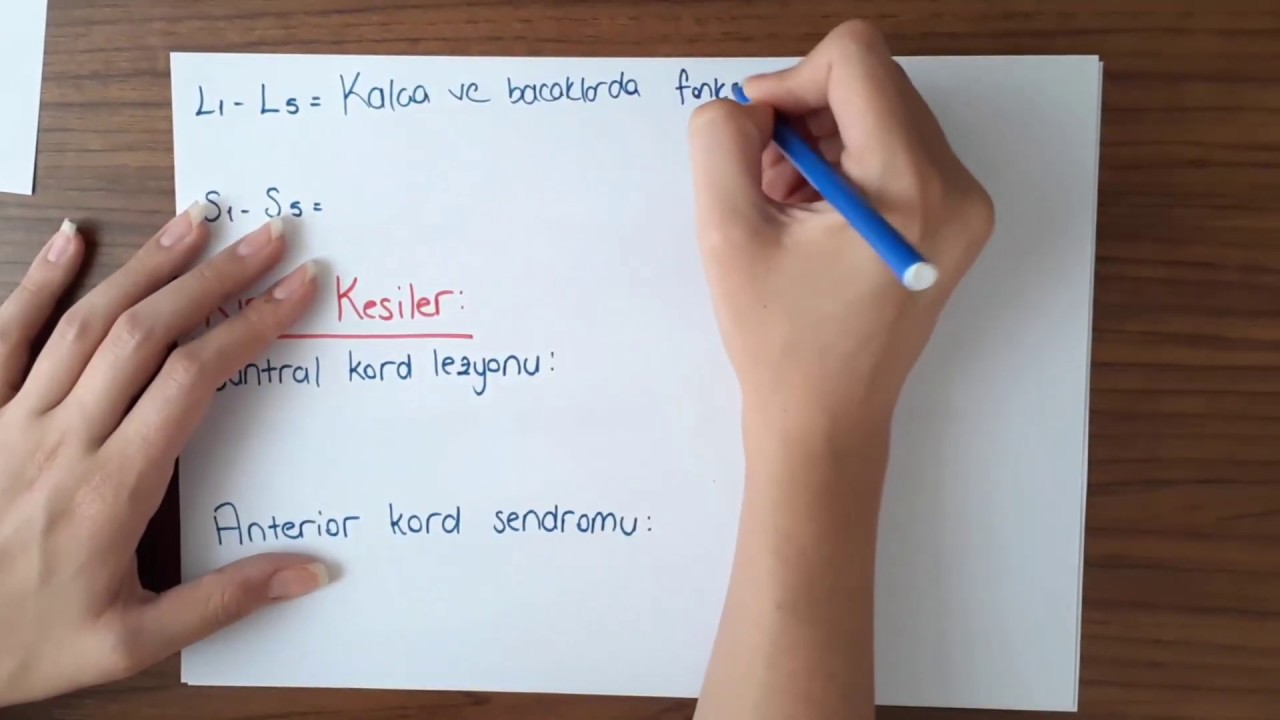 L1 - L5 = Kalca ve bacaklarda
S1 - S5 =
Kesiler:
kord lezyonu:
Anterior kord sendromu: